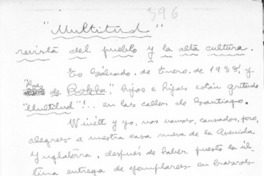 396
"Multitud"
revista del pueblo y la alta cultura.
Es Sábado, de Enero, de 1938, y
de Rokha" hijos e hijas están gritando
"Multitud"!.. en las calles de Santiago.
Winétt y yo, nos vamos, cansados, pero,
alegres a nuestra casa nueva de la Avenida
Inglaterra, después de haber puesto la úl-
tima entrega de ejemplares en brazos